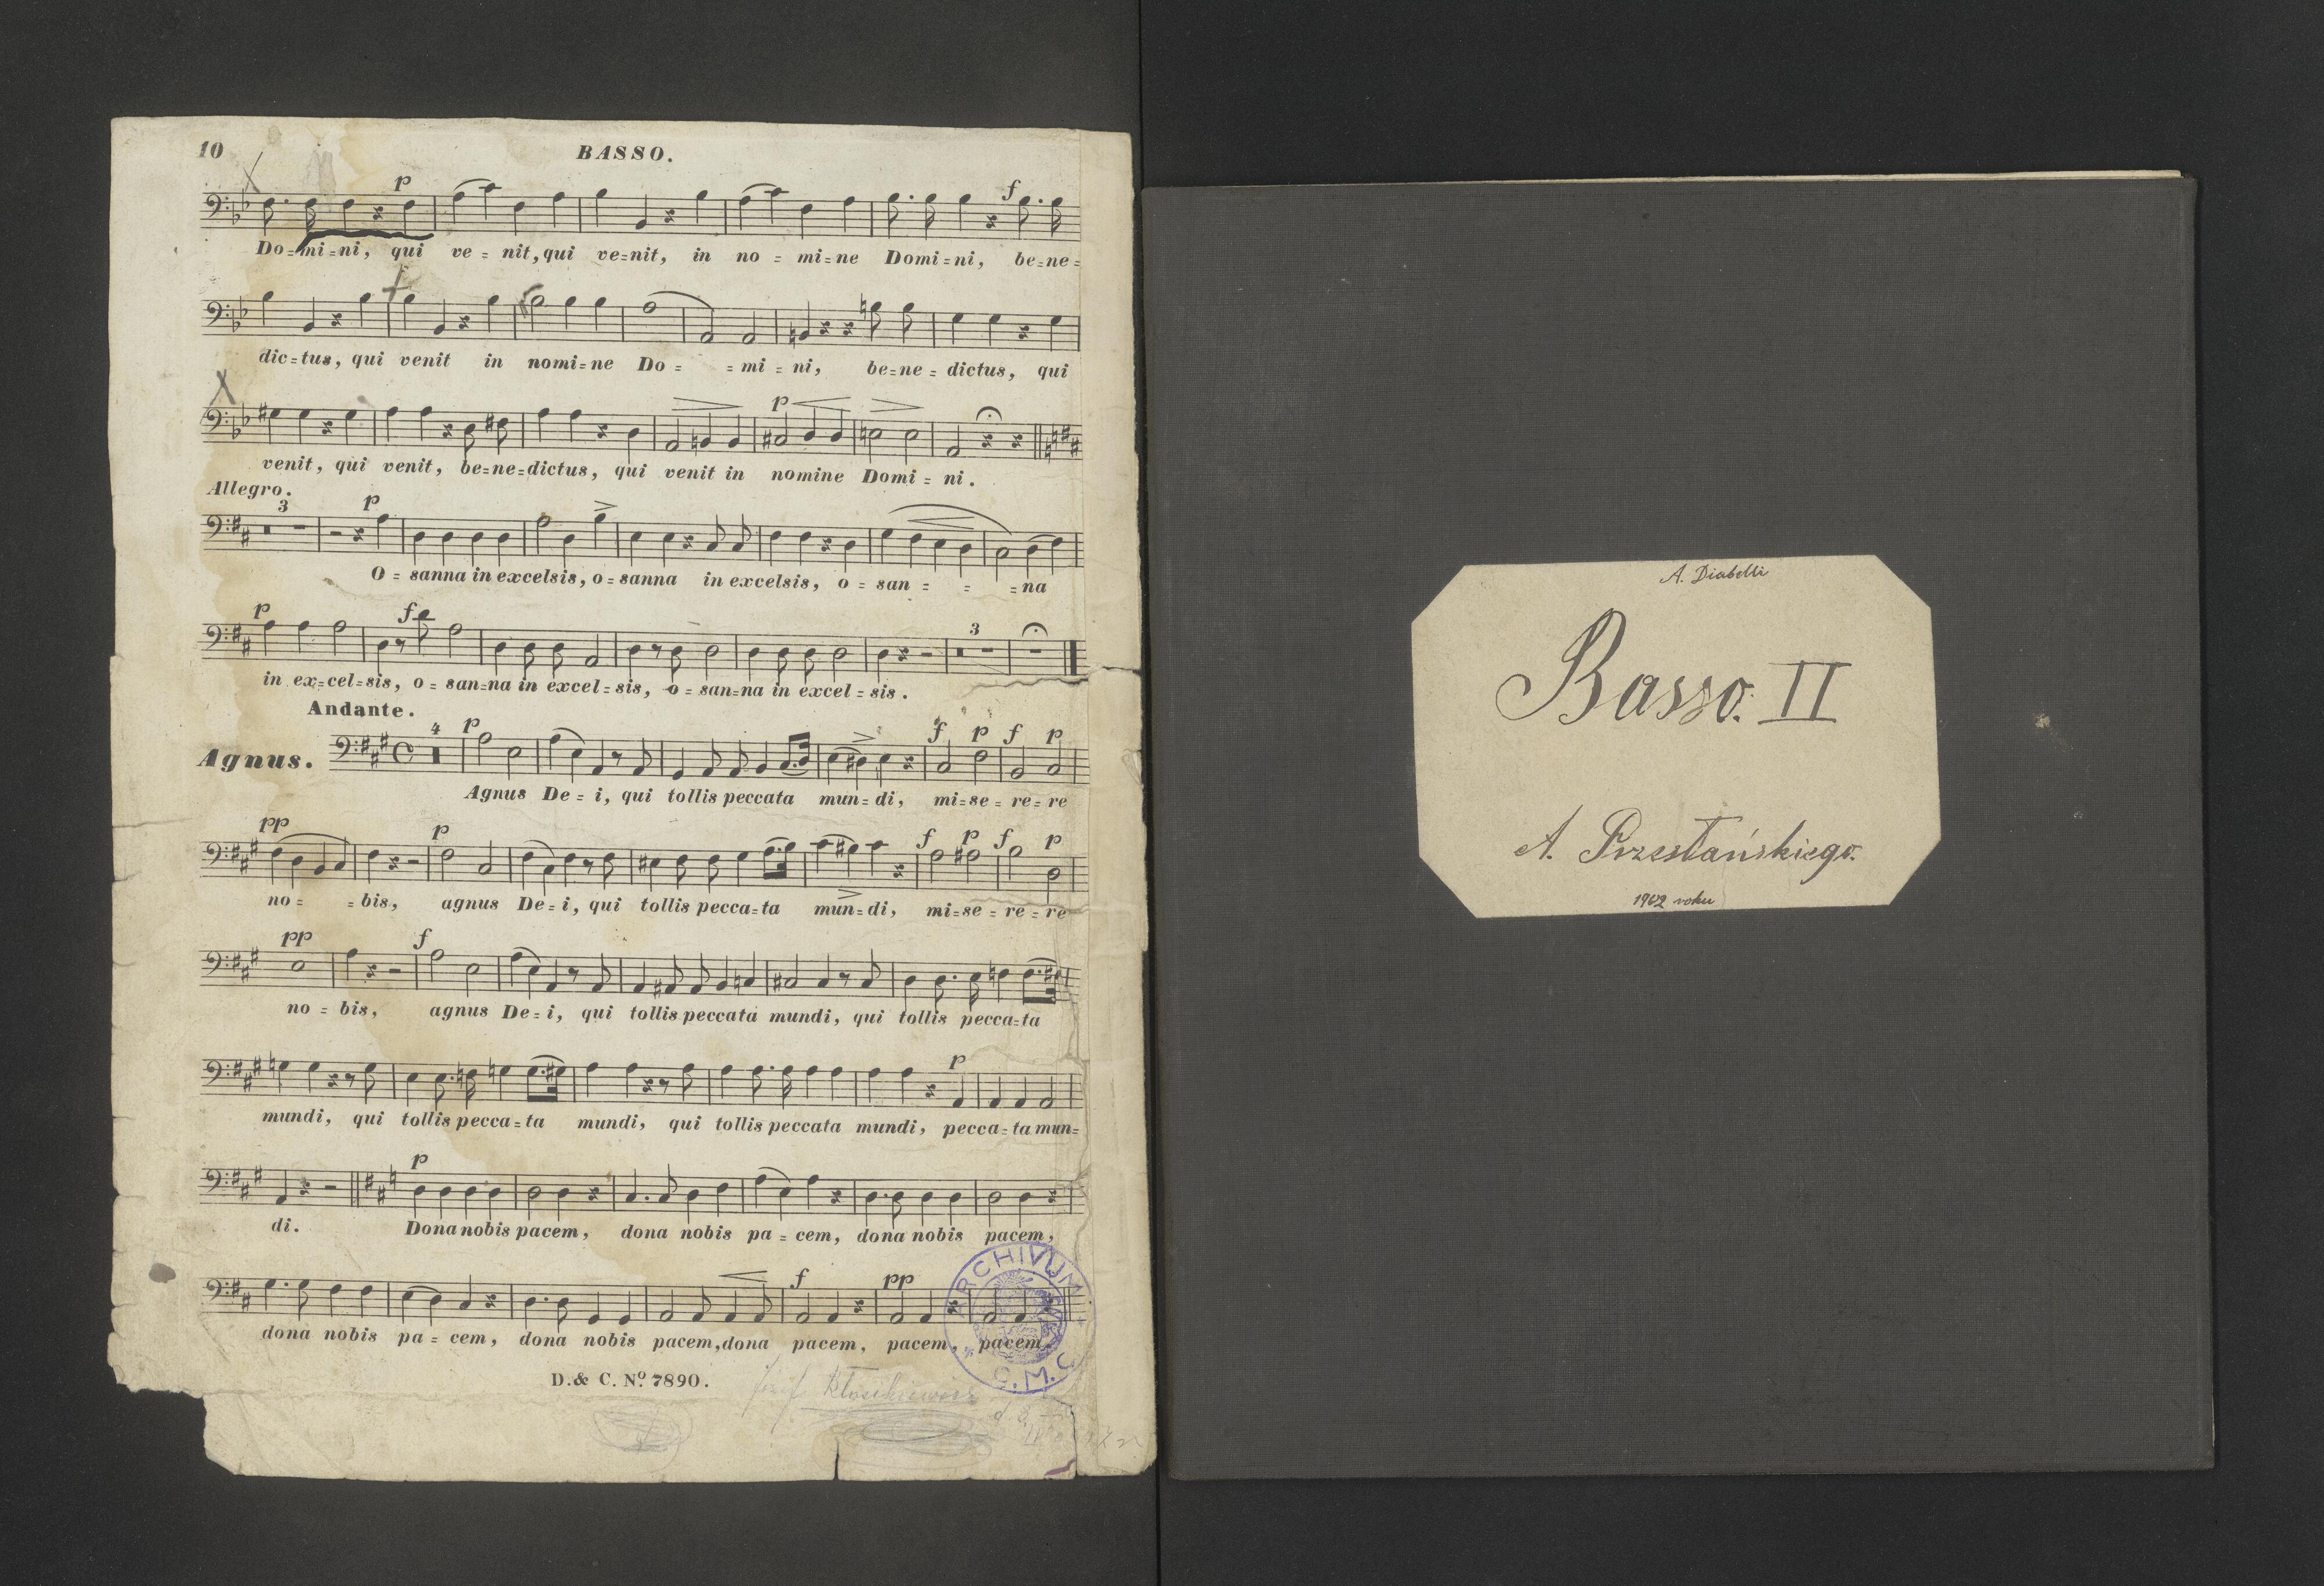 10
BASSO.
Do=mi=ni, qui ve=nit, qui ve=nit, in no=mi=ne Domi=ni, be=ne=
dic=tus, qui venit in nomi=ne Do= =mi=ni, be=ne=dictus, qui
venit, qui venit, be=ne=dictus, qui venit in nomine Domi=ni.
Allegro.
3
O=sanna in excelsis, o=sanna in excelsis, o=san= = =na
3
in ex=cel=sis, o=san=na in excel=sis, o=san=na in excel=sis.
Andante.
4
Agnus.
Agnus De=i, qui tollis peccata mun=di, mi=se=re=re
no= =bis, agnus De=i, qui tollis pecca=ta mun=di, mi=se=re=re
no=bis, agnus De=i, qui tollis peccata mundi, qui tollis pecca=ta
mundi, qui tollis pecca=ta mundi, qui tollis peccata mundi, pecca=ta mun=
di. Dona nobis pacem, dona nobis pa=cem, dona nobis pacem,
dona nobis pa=cem, dona nobis pacem, dona pacem, pacem, pacem
D. & C. No. 7890.
ARCHIVUM
C.M.C.
A. Diabelli
Basso. II
A. Przestańskiego.
1962 roku